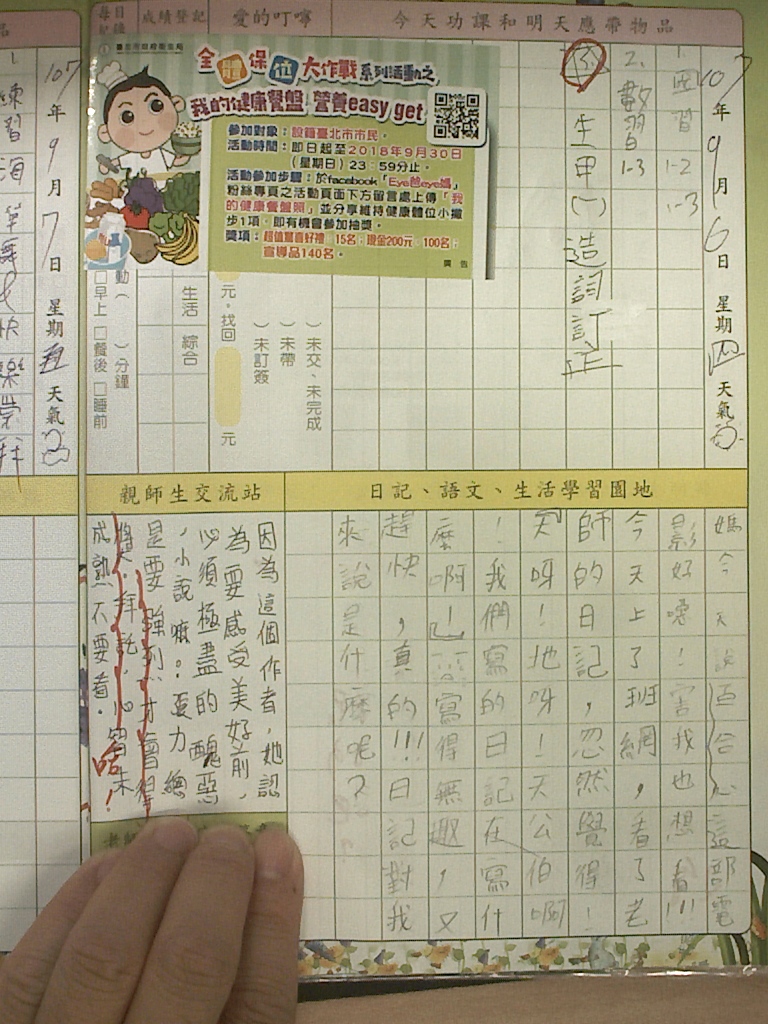 今天功課和明天應帶物品
愛的叮嚀
成績登記
107年9月6日星期四天氣
1.國習1-2
1-3
2.數習1-3
3.生甲(一)造詞訂正
全體保位大作戰系列活動之
我的健康餐盤 營養easy get
參加對象：設籍臺北市市民。
活動時間：即日起至2018年9月30日
(星期日) 23：59分止。
活動參加步驟：於facebook「Eye爸eye媽」
粉絲專頁之活動頁面下方留言處上傳「我
的健康餐盤照」並分享維持健康體位小撇
步1項，即有機會參加抽獎。
獎項：超值驚喜好禮 15名；現金200元 100名；
宣導品140名。
廣告
)未交、未完成
)未帶
)未訂簽
元，找回
元
生活
綜合
動( )分鐘
□早上 □餐後 □睡前
日記、語文、生活學習園地
媽今天說百合心這部電
影好噁！害我也想看!!!
今天上了班網，看了老
師的日記，忽然覺得！
天呀！地呀！天公伯啊
！我們寫的日記在寫什
麼啊！寫得無趣，又
趕快，真的!!!日記對我
來說是什麼呢？
親師生交流站
因為這個作者，她認
為要感受美好前，
必須極盡的醜惡
，小說嘛。張力總
是要強烈，才會得
獎。拜託，心智未
成熟不要看。
哈！
107年9月7日星期五天氣